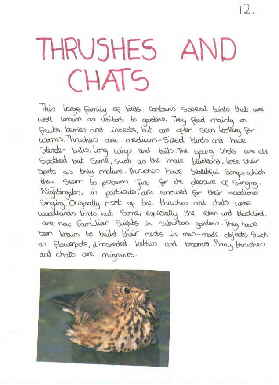 12.
THRUSHES AND
CHATS
This large family of birds contains several birds that are
well known as visitors to gardens. They feed mainly on
fruits, berries and insects, but are often seen looking for
worms. Thrushes are medium-sized birds and have
slender bills, long wings and tails. The young chats are all
spotted but some, such as the male blackbird, lose their
spots as they mature. Thrushes have beautiful songs which
they seem to perform just for the pleasure of singing.
Nightingales, in particular, are renowned for their melodious
singing. Originally most of the thrushes and chats were
woodland birds but some, especially the robin and blackbird,
are now familiar sights in suburban gardens. They have
been known to build their nests in man-made objects such
as flowerpots, discarded kettles and brooms. Many thrushes
and chats are migrants.